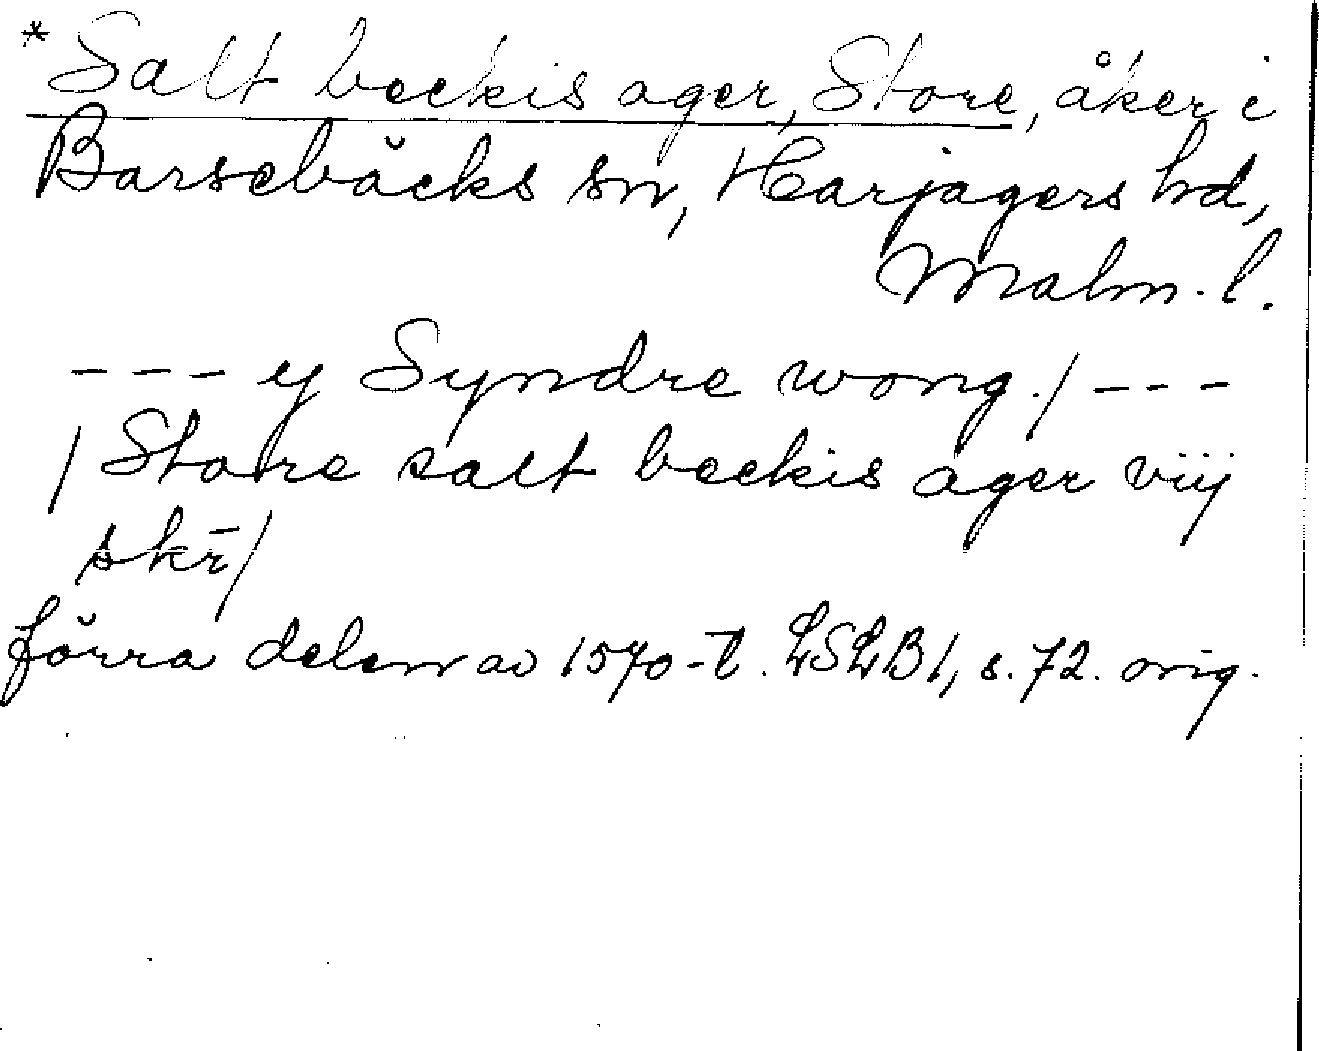 *Salt beckis ager, Store, åker i
Barsebäcks sn, Harjagers hd,
Malm. l.
--- y Syndre wong./ ---
/ Store salt beckis ager viij
skr̄/
förra delen av 1570-t. LSLB1, s. 72. orig.